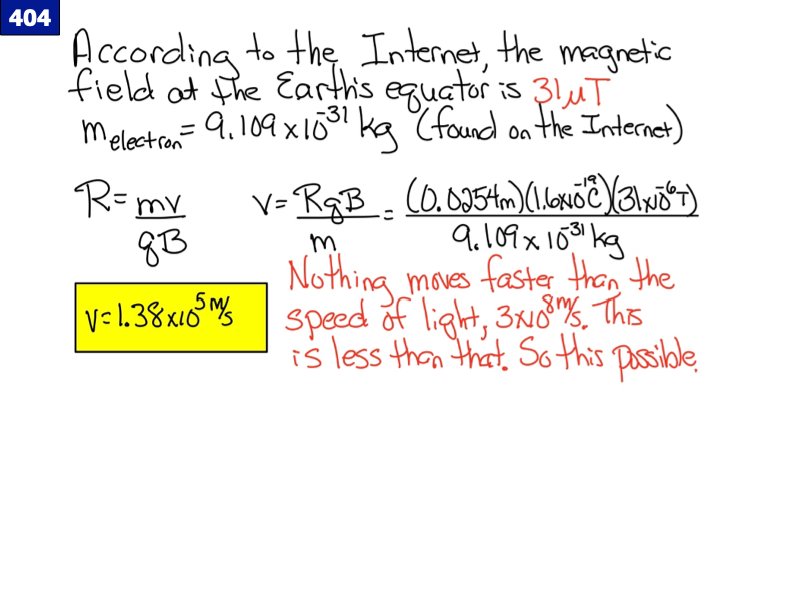 404
According to the Internet, the magnetic
field at the Earth's equator is 31μT
m electron = 9.109 x 10^-31 kg (found on the Internet)
R = mv/qB   v = RqB/m = (0.0254m)(1.6x10^-19 C)(31x10^-6 T)/9.109 x 10^-31 kg
Nothing moves faster than the
v=1.38x10^5 m/s
speed of light, 3x10^8 m/s. This
is less than that. So this possible.